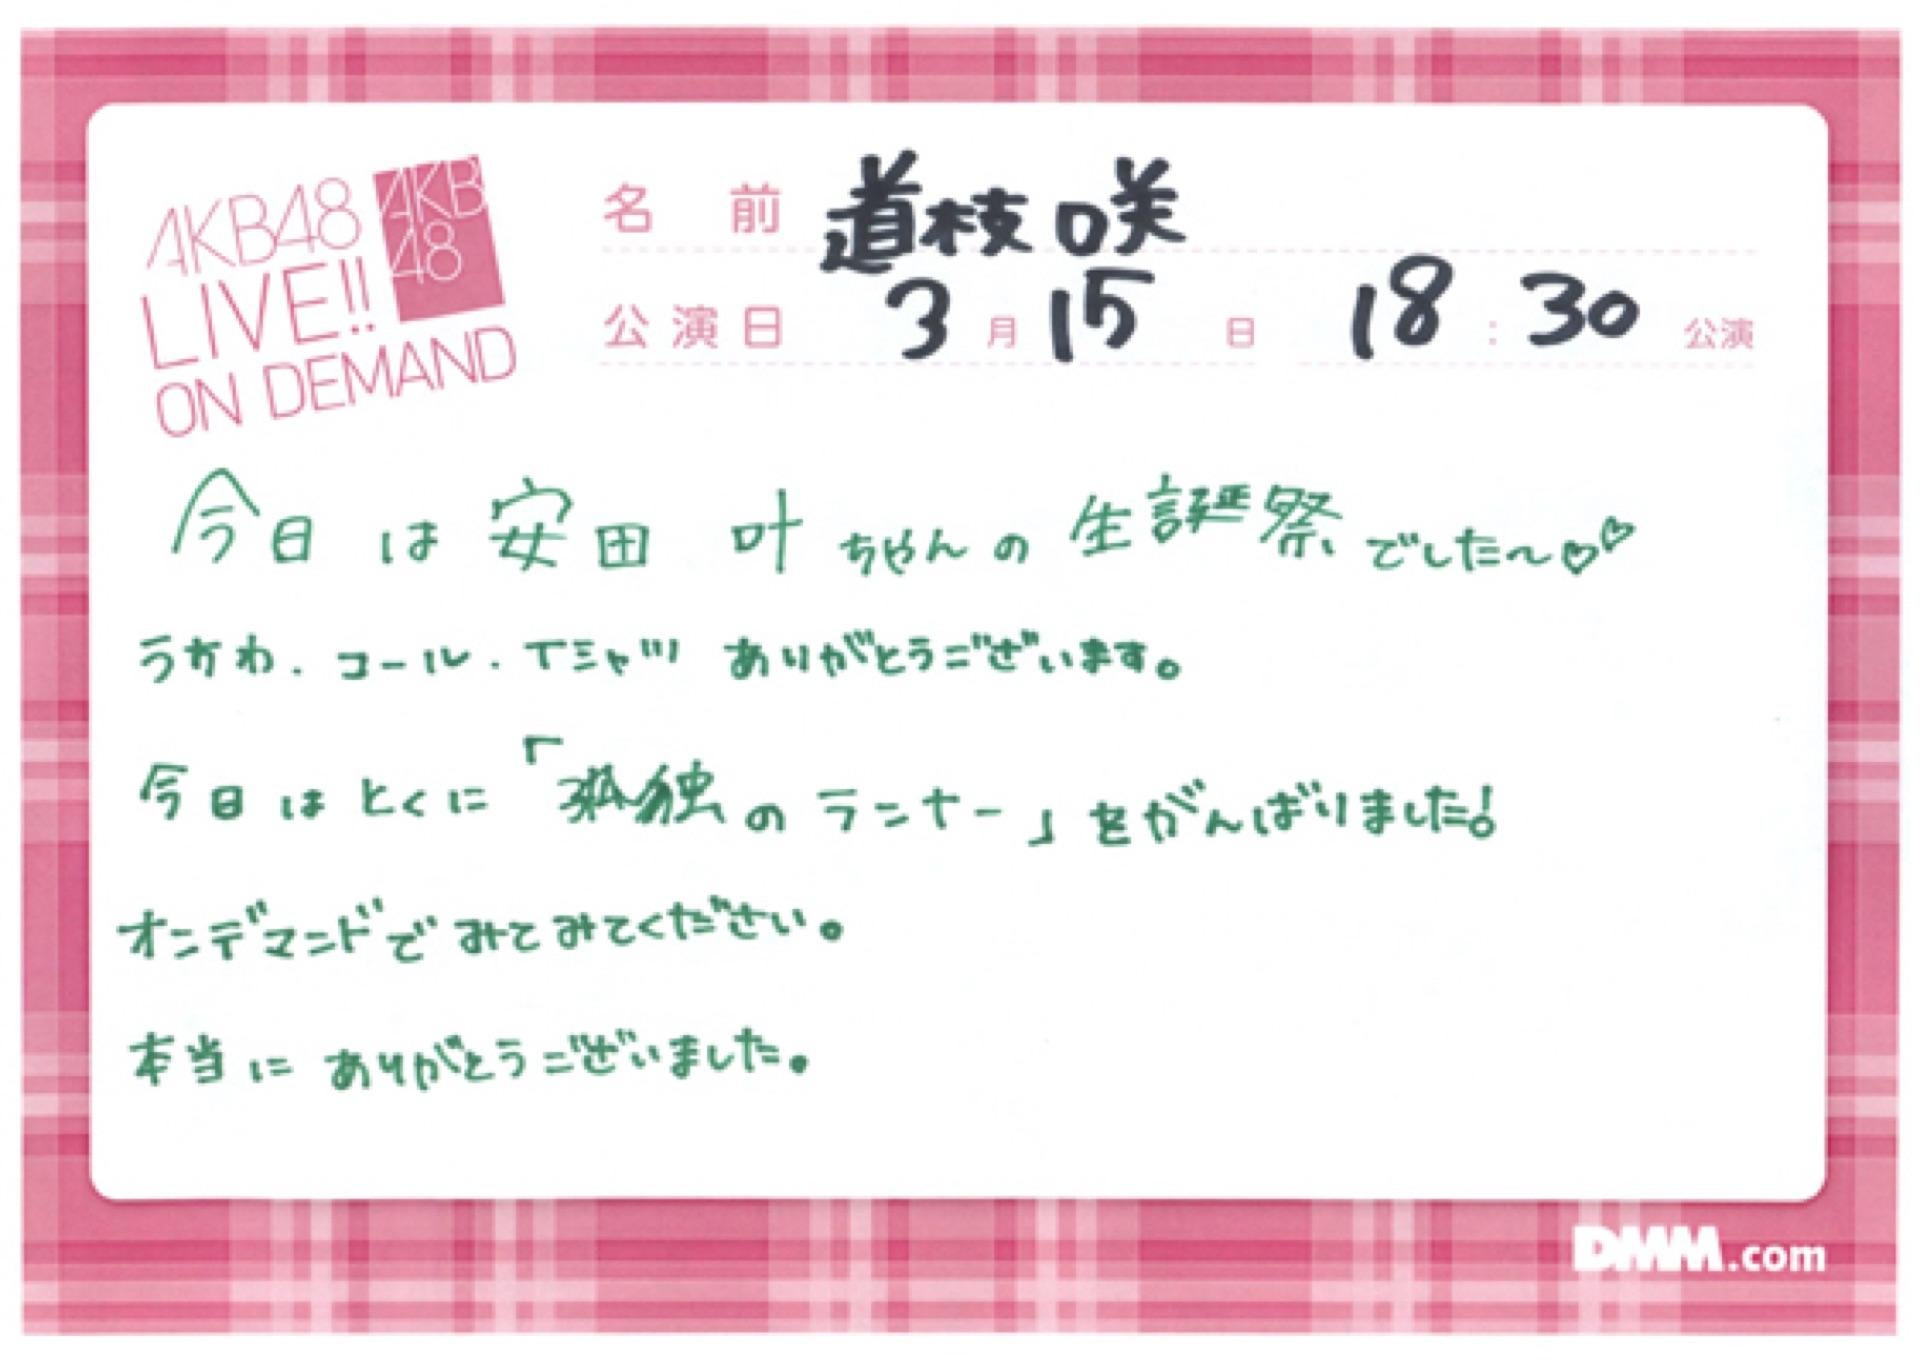 AKB48
LIVE!!
ON DEMAND
AKB
48
名前 道枝咲
公演日 3月15日 18:30公演
今日は安田 叶ちゃんの生誕祭でした〜♡♡
うちわ.コール.Tシャツ ありがとうございます。
今日はとくに「孤独のランナー」をがんばりました!
オンデマンドでみてみてください。
本当にありがとうございました。
DMM.com